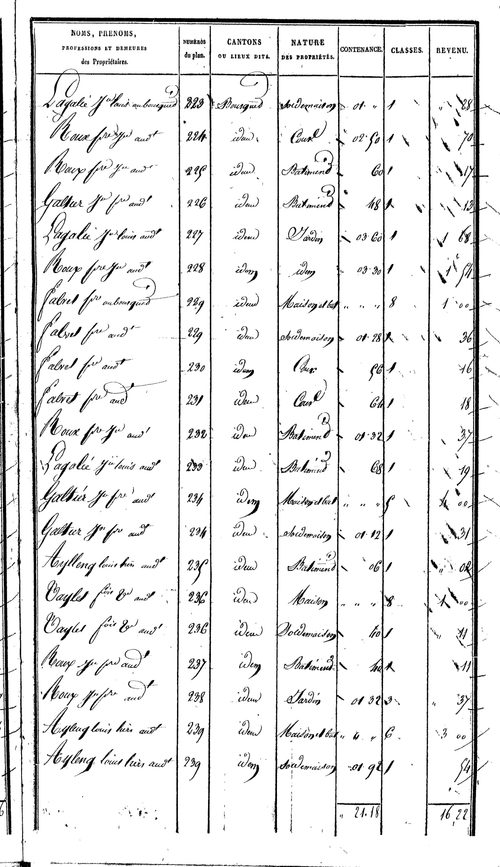 NOMS, PRENOMS, PROFESSIONS ET DEMEURES des Propriétaires. | NUMÉROS du plan. | CANTONS OU LIEUX DITS. | NATURE DES PROPRIÉTÉS. | CONTENANCE. | CLASSES. | REVENU.
Lagalié Jn louis au bousquet 223 Bousquet Sol de maison 01 " 1 " 28
Roux fre Jn audt 224 idem Cour 02 50 1 70
Roux fre Jn audt 225 idem Batiment 60 1 17
Galtier Jn fre audt 226 idem Batiment 48 1 13
Lagalié Jn louis audt 227 idem Jardin 03 60 1 1 68
Roux fre Jn audt 228 idem idem 03 30 1 1 54
Fabret fre au bousquet 229 idem Maison et bat " " " 8 1 00
Fabret fre audt 229 idem Sol de maison 01 28 1 36
Fabret fre audt 230 idem Cour 56 1 16
Fabret fre audt 231 idem Cour 64 1 18
Roux fre Jn audt 232 idem Batiment 01 32 1 37
Lagalié Jn louis audt 233 idem Batiment 68 1 19
Galtier Jn fre audt 234 idem Maison et bat " " " 5 00
Galtier Jn fre audt 234 idem Sol de maison 01 12 1 31
Aylleng louis hirs audt 235 idem Batiment 06 1 02
Vayles fois audt 236 idem Maison " " " 8 1 00
Vayles fois audt 236 idem Sol de maison 40 1 11
Roux Jn fre audt 237 idem Batiment 40 1 11
Roux Jn fre audt 238 idem Jardin 01 32 3 " 37
Aylleng louis hirs audt 239 idem Maison et bat " " " 6 3 00
Aylleng louis hirs audt 239 idem Sol de maison 01 92 1 54
21.18 16,22